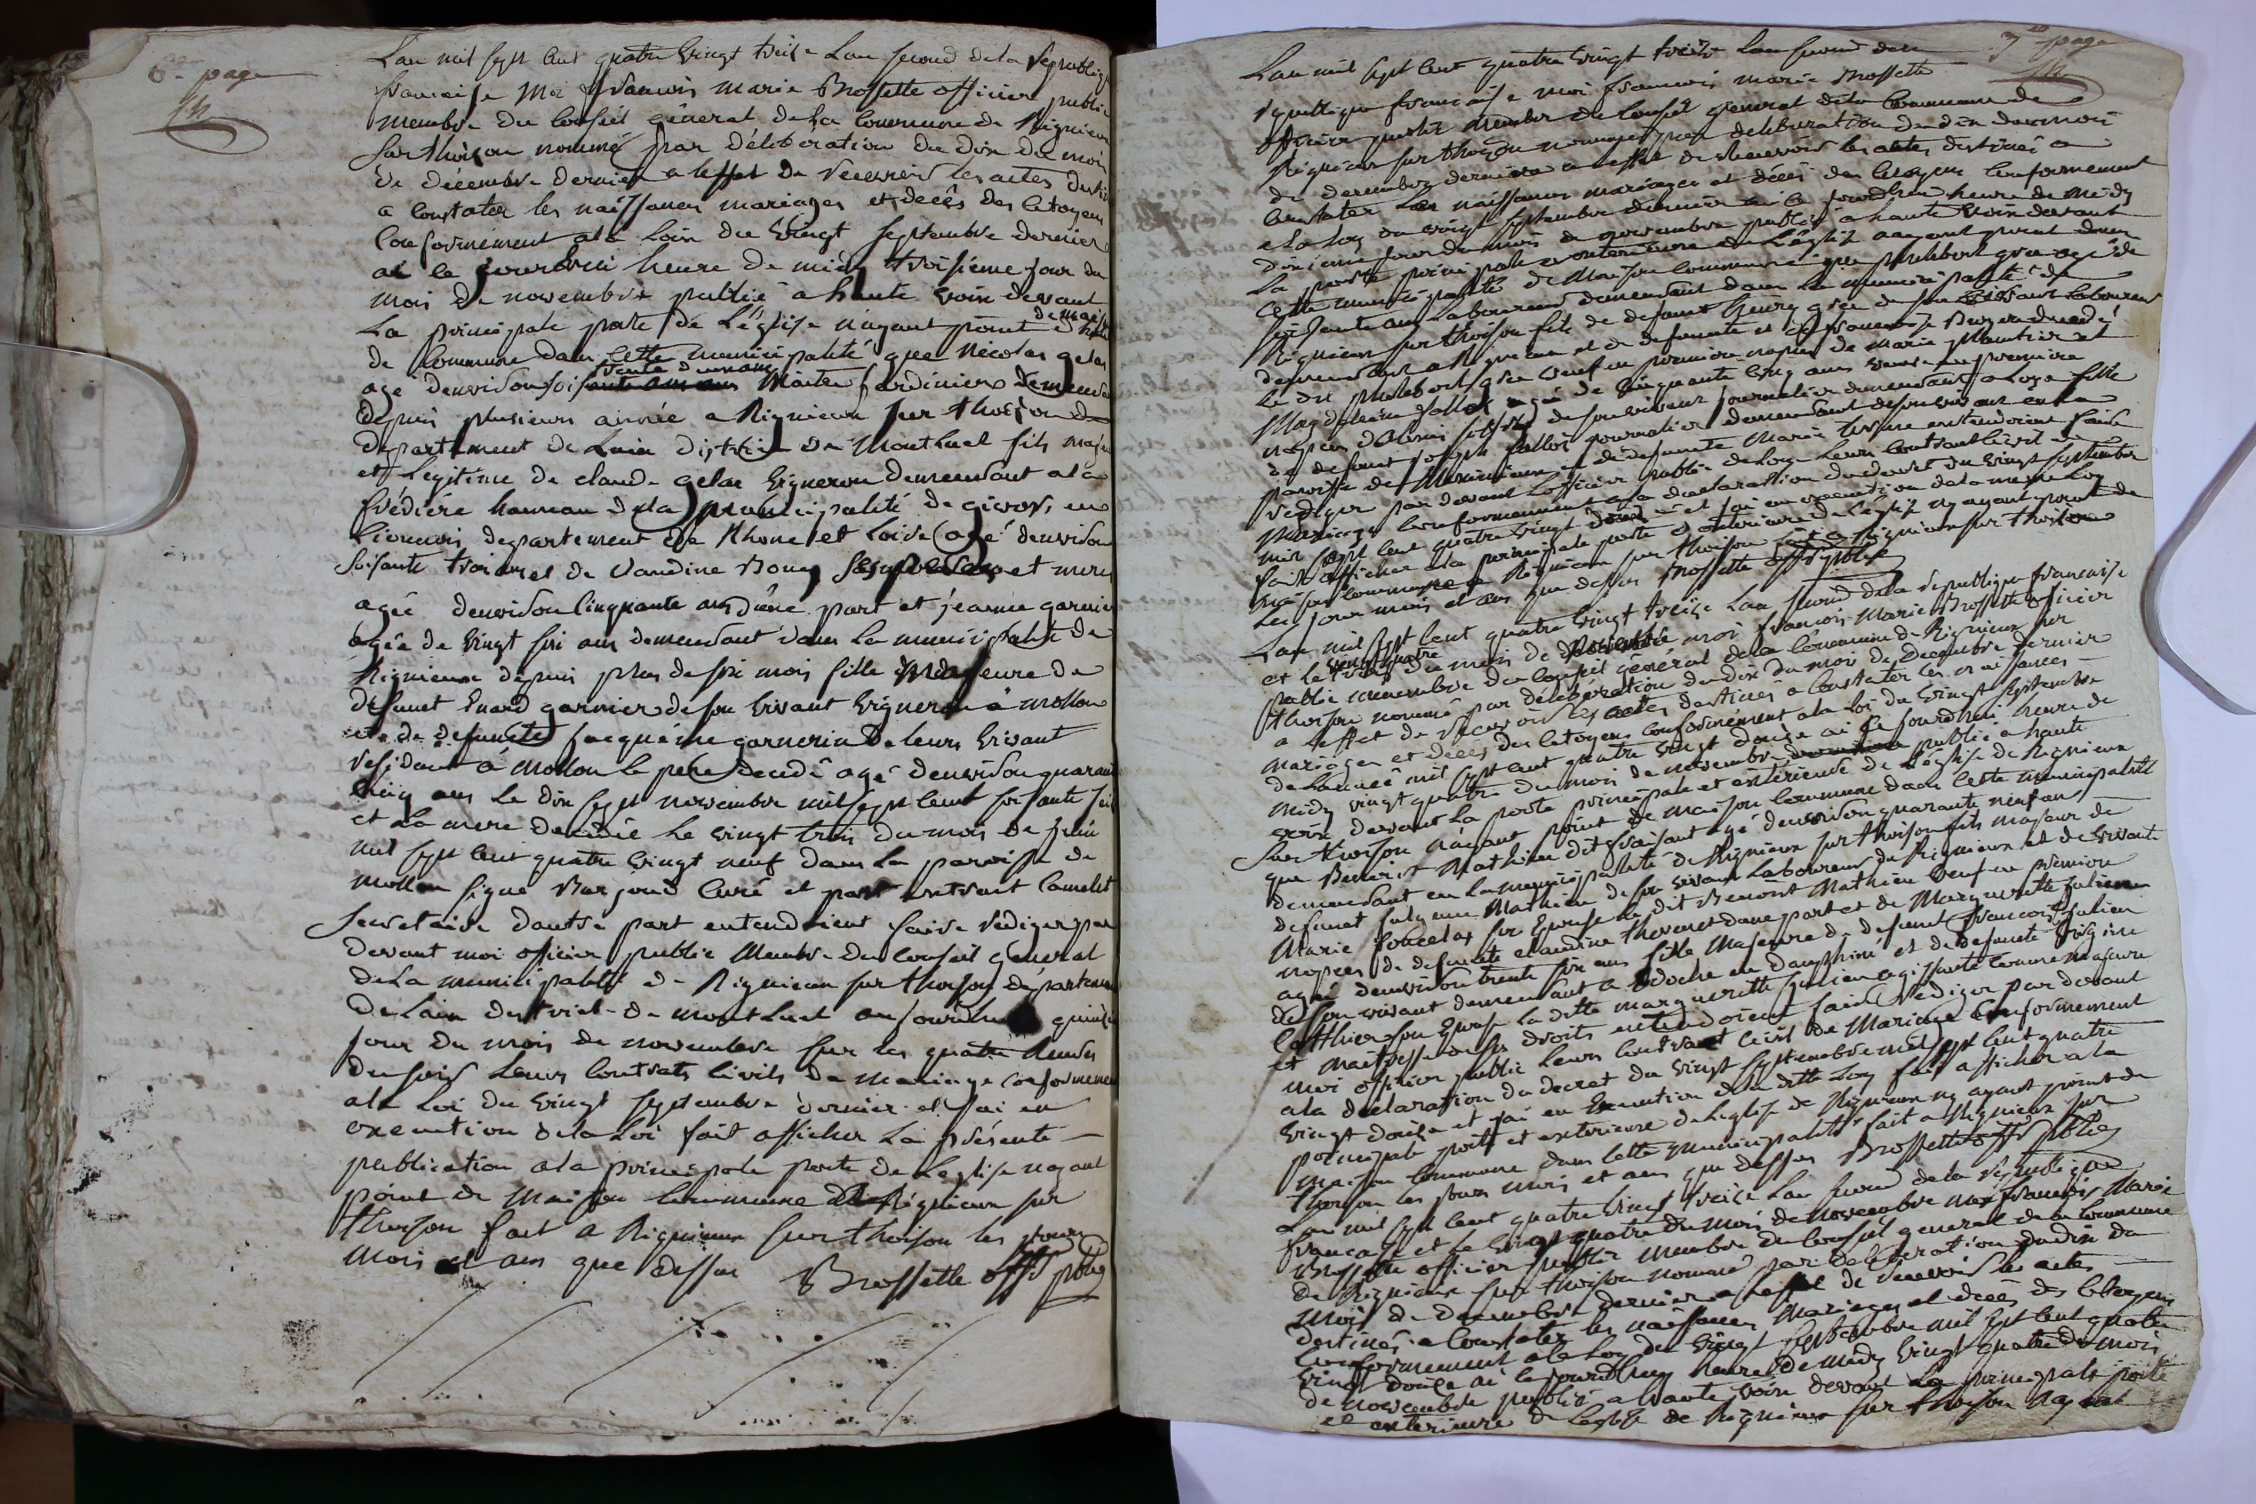 6e page
L'an mil sept cent quatre vingt treize L'an second de la Republiq
francaise Moi francois marie Brossette officier public
membre du Conseil général de La Commune de Rignieux
sur thoizon nommé par délibération du dix du mois
de décembre dernier a leffet de recevoir les actes destin
a constater les naissances mariages et décès des citoyens
conformement a la Loix du vingt septembre dernier
ai ce jourdhui heure de midy troisième jour du
mois de novembre publié a haute voix devant
La principale porte de L'église n'ayant point de mais
de Commune dans cette municipalité que Nicolas gelas
agé denviron trente ans Maitre Jardinier demeura
depuis plusieurs année a Rignieux sur thoizon
departement de Lain district de Montluel fils majeu
et Legitime de claude gelas vigneron demeurant a la
frédière hameau de la municipalité de givors en
Lionnois departement de Rhone et Loire agé denviron
soisante trois ans et de Claudine Bouy et mere
agée denviron cinquante ans dune part et jeanne garnier
agée de vingt six ans demeurant dans la municipalité de
Rignieux depuis plus de six mois fille majeure de
défunct garnier de son vivant vigneron à mollon
et de defuncte jacquême garnerin de leurs vivant
résidant à Mollon le père décédé agé denviron quarante
cinq ans Le dix sept novembre mil sept cent soisante
et La mere décédée le vingt trois du mois de juin
mil sept cent quatre vingt neuf dans La paroisse de
mollon signé curé et par extrait camelet
Secretaire dautre part entendoient faire rediger par
devant moi officier public Membre du conseil general
de La municipalité de Rignieux sur thoizon département
de Lain district de montluel aujourdhui quinze
jour du mois de novembre sur les quatre heures
du soir Leurs Contrats civils de mariage conformement
a la Loi du vingt septembre dernier et j'ai en
execution de la Loi fait afficher La présente
publication a la principale porte de Leglise nayant
point de Maison Commune a Rignieux sur
thoizon fait a Rignieux sur thoizon les jours
mois et ans que dessus Brossette offr pblic
7e page
L'an mil sept cent quatre vingt treize L'an second de la
republique francaise moi francois marie Brossette
officier public membre du Conseil general de la Commune de
Rignieux sur thoizon nommé par deliberation du dix du mois
de decembre dernier a leffet de recevoir les actes destinés a
constater les naissances mariages et décès des Citoyens Conformement
a la Loy du vingt septembre dernier ai ce jourdhui heure de midy
dixieme jour du mois de novembre publié a haute voix devant
La porte principale exterieure de L'église nayant point dans
cette municipalité de Maison Commune que philibert agé de
soisante ans Laboureur demeurant dans la municipalité de
Rignieux sur thoizon fils de defunt de son vivant Laboureur
demeurant a Rignieux et de defunte
Le dit philibert veuf en premiere nopces de marie et
Magdeleine follet agée de cinquante cinq ans veuve en premiere
nopces de son vivant journalier demeurant a Loye fille
de defunt joseph follet journalier demeurant de son vivant en la
paroisse de et de defunte Marie entendoient faire
rediger par devant Lofficier public de Loye Leurs Contrat Civil de
Mariage Conformement a la declaration du decret du vingt septembre
mil sept cent quatre vingt douze et j'ai en execution de la meme Loy
fait afficher a la principale porte exterieure de L'église ny ayant point de
maison Commune a Rignieux sur thoizon fait a Rignieux sur thoizon
Les jour mois et ans que dessus Brossette offr public
L'an mil sept cent quatre vingt treize L'an second de la republique francaise
et le vingt quatre du mois de novembre moi francois Marie Brossette officier
public membre du Conseil général de la Commune de Rignieux sur
thoizon nommé par déliberation du dix du mois de Decembre dernier
a leffet de recevoir les actes destinés a Constater les naissances
mariages et décès des Citoyens conformément a la Loi du vingt septembre
de L'année mil sept cent quatre vingt douze ai ce jourdhui heure de
midy vingt quatre du mois de novembre publié a haute
voix devant La porte principale et extérieure de L'église de Rignieux
sur thoizon nayant point de maison Commune dans cette municipalité
que Benoist Mathieu dit agé denviron quarante neuf ans
demeurant en La municipalité de Rignieux sur thoizon fils majeur de
defunt Mathieu de son vivant Laboureur de Rignieux et de vivante
Marie son Epouse Le dit Benoist Mathieu veuf en premiere
nopces de defuncte claudine thevenet dune part et de Marguerite julien
agée denviron trente six ans fille Majeure de defunct francois julien
de son vivant demeurant a en Dauphiné et de defuncte
son Epouse La ditte marguerite julien agissante comme majeure
et maitresse de ses droits entendoient faire rediger par devant
moi officier public Leurs Contrat civil de Mariage Conformement
a la déclaration du decret du vingt septembre mil sept cent quatre
vingt douze et j'ai en Execution de la ditte Loy fait afficher a la
principale porte et exterieure de Leglise de Rignieux ny ayant point de
maison Commune dans cette municipalité fait a Rignieux sur
thoizon les jours mois et ans que dessus Brossette offr public
L'an mil sept cent quatre vingt treize L'an second de la republique
francaise et le vingt quatre du mois de novembre moi francois Marie
Brossette officier public membre du Conseil general de la Commune
de Rignieux sur thoizon nommé par deliberation du dix du
mois de decembre dernier a leffet de recevoir les actes
destinés a Constater les naissances Mariages et décès des Citoyens
Conformement a la Loy du vingt septembre mil sept cent quatre
vingt douze ai ce jourdhuy heure de midy vingt quatre du mois
de novembre publié a haute voix devant La principale porte
et exterieure de Leglise de Rignieux sur thoizon nayant